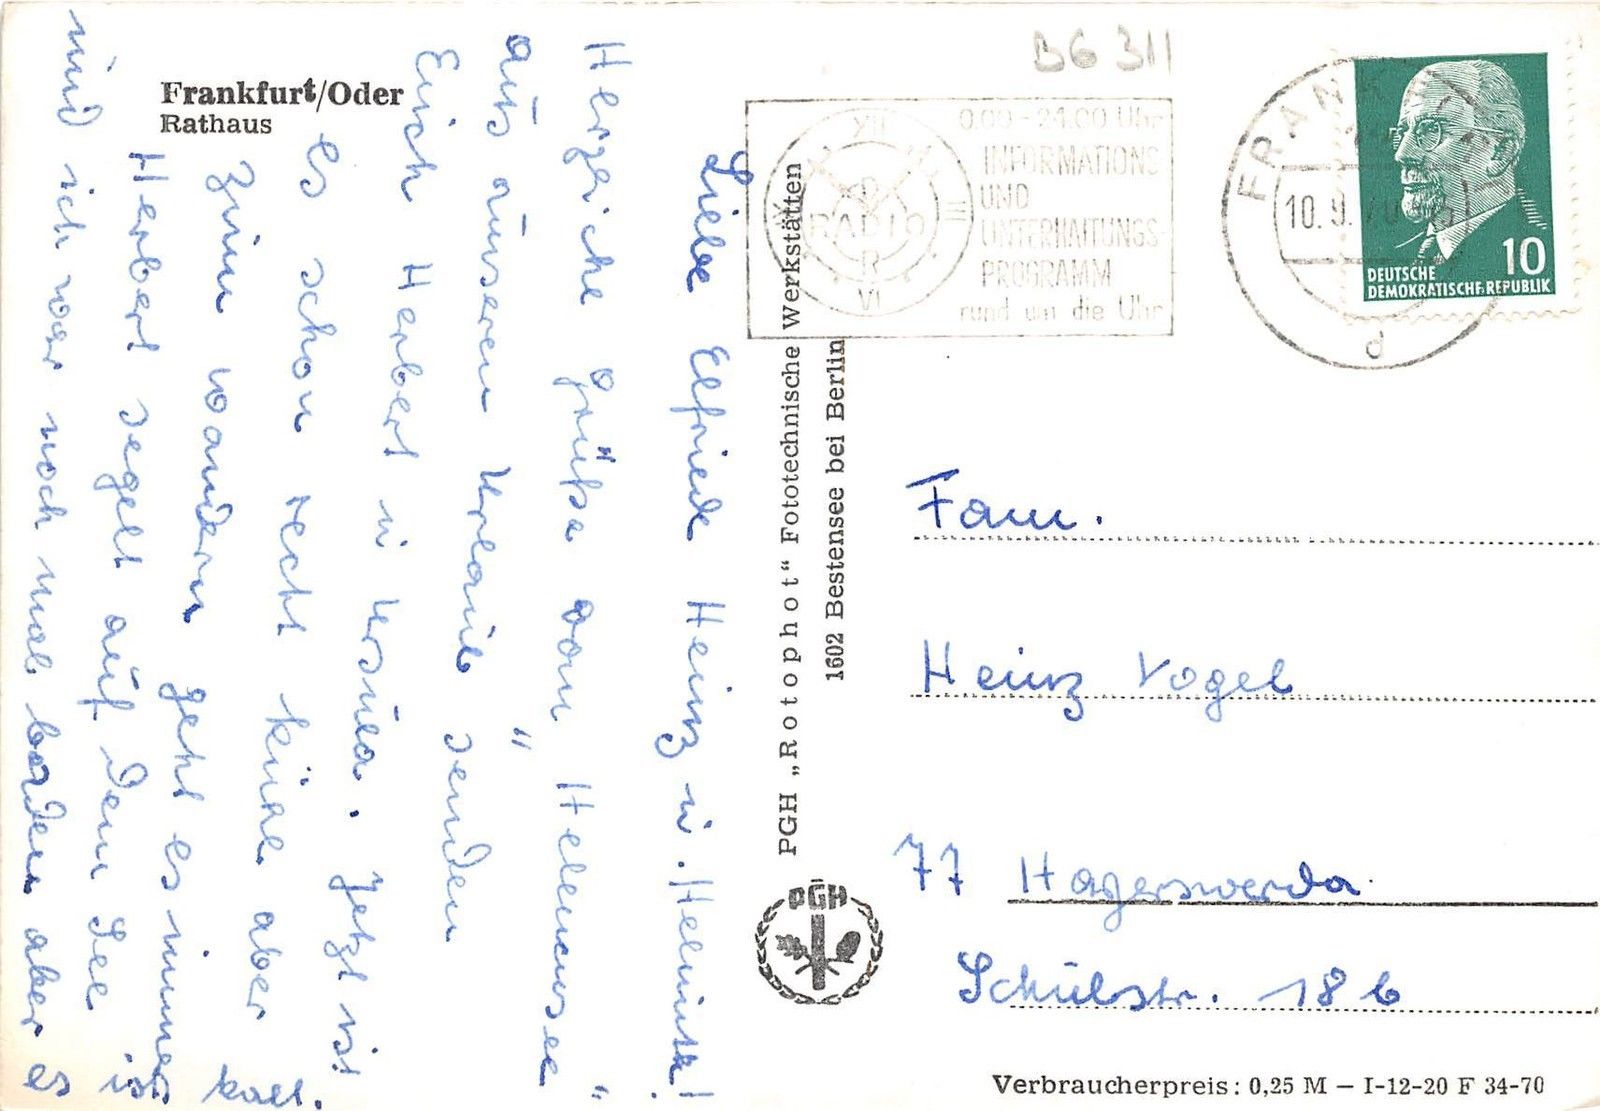 Frankfurt/Oder
Rathaus
Liebe Elfriede Heinz u. Helmuth!
Herzliche Grüße vom Helenensee
aus unseren Urlaub senden
Erich Herbert u Ursula. Jetzt ist
es schon recht kühl aber
zum wandern geht es immer
Herbert segelt auf dem See
und ich war noch mal baden aber es
ist kalt.
PGH „Rotophot“ Fototechnische Werkstätten
1602 Bestensee bei Berlin
PGH
B6 311
0.00-24.00 Uhr
INFORMATIONS
UND
UNTERHALTUNGS-
PROGRAMM
rund um die Uhr
RADIO
XII
III
VI
FRANK
10.9.70
d
10
DEUTSCHE
DEMOKRATISCHE REPUBLIK
Fam.
Heinz Vogel
77 Hoyerswerda
Schulstr. 18 b
Verbraucherpreis: 0,25 M – I-12-20 F 34-70